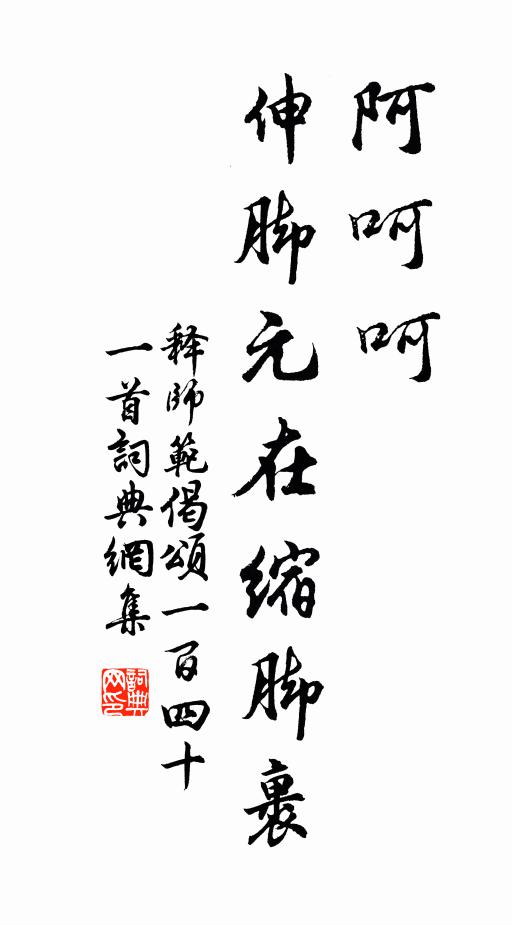 阿呵呵
伸脚元在缩脚裹
释師範偈頌一百四十
一首詞典網集
詞典网印